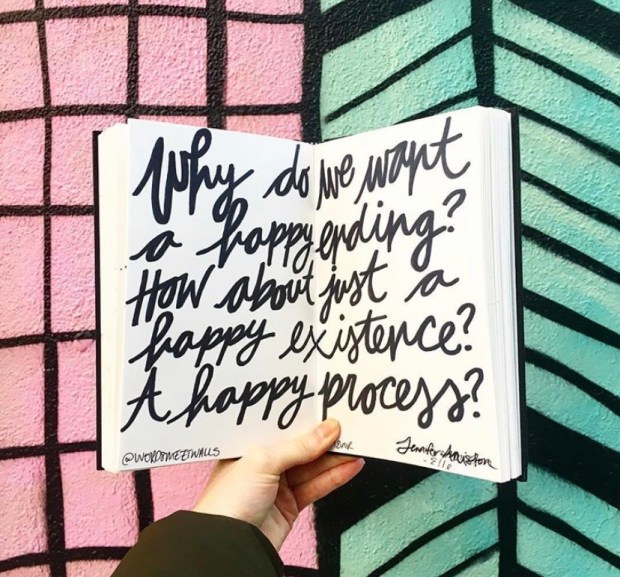 Why do we want
a happy ending?
How about just a
happy existence?
A happy process?
@WORDSMEETWALLS
Jennifer Aniston